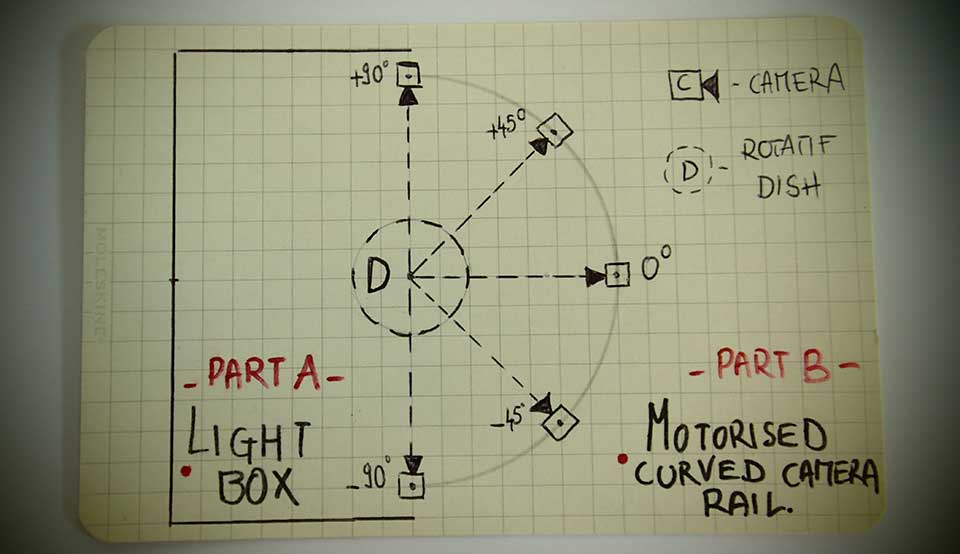 +90°
C - CAMERA
+45°
D - ROTATIF
DISH
MOLESKINE
D
0°
- PART A -
LIGHT
BOX
-45°
-90°
- PART B -
MOTORISED
CURVED CAMERA
RAIL.